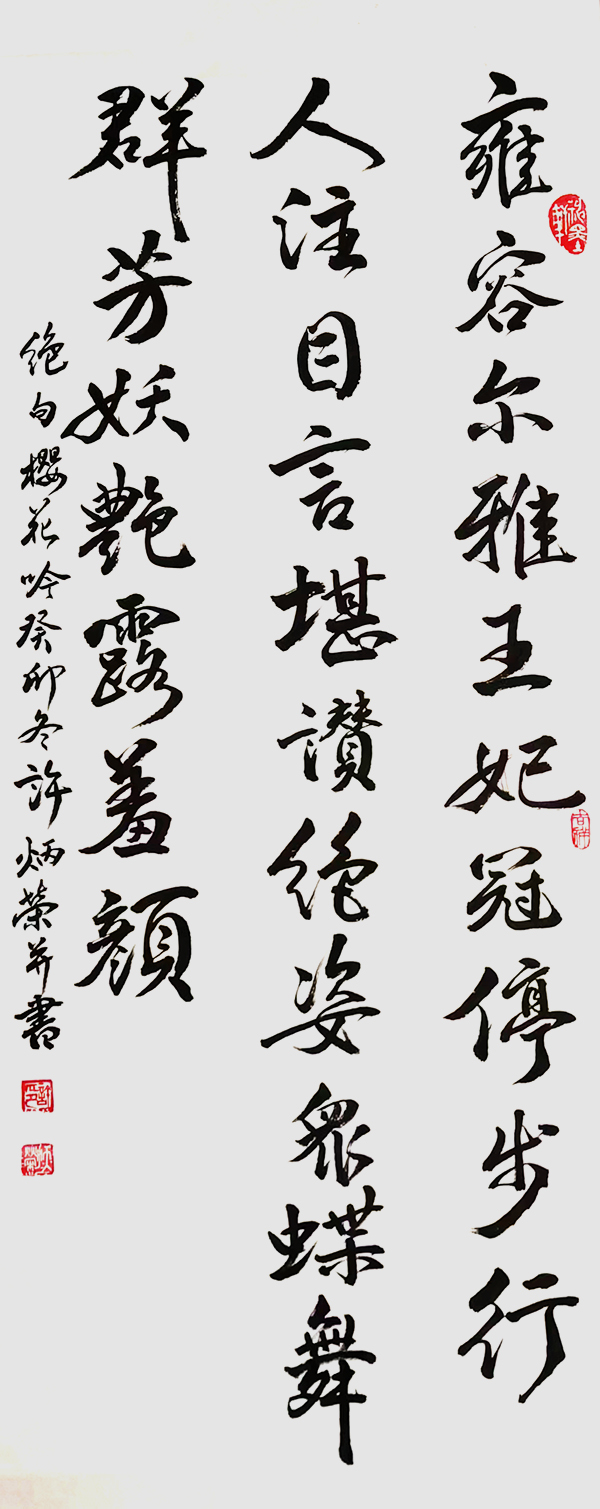 雍容尔雅王妃冠停步行
人注目言堪讃絶姿眾蝶舞
群芳妖艷露羞顔
絶句櫻花吟癸卯冬許炳榮并書